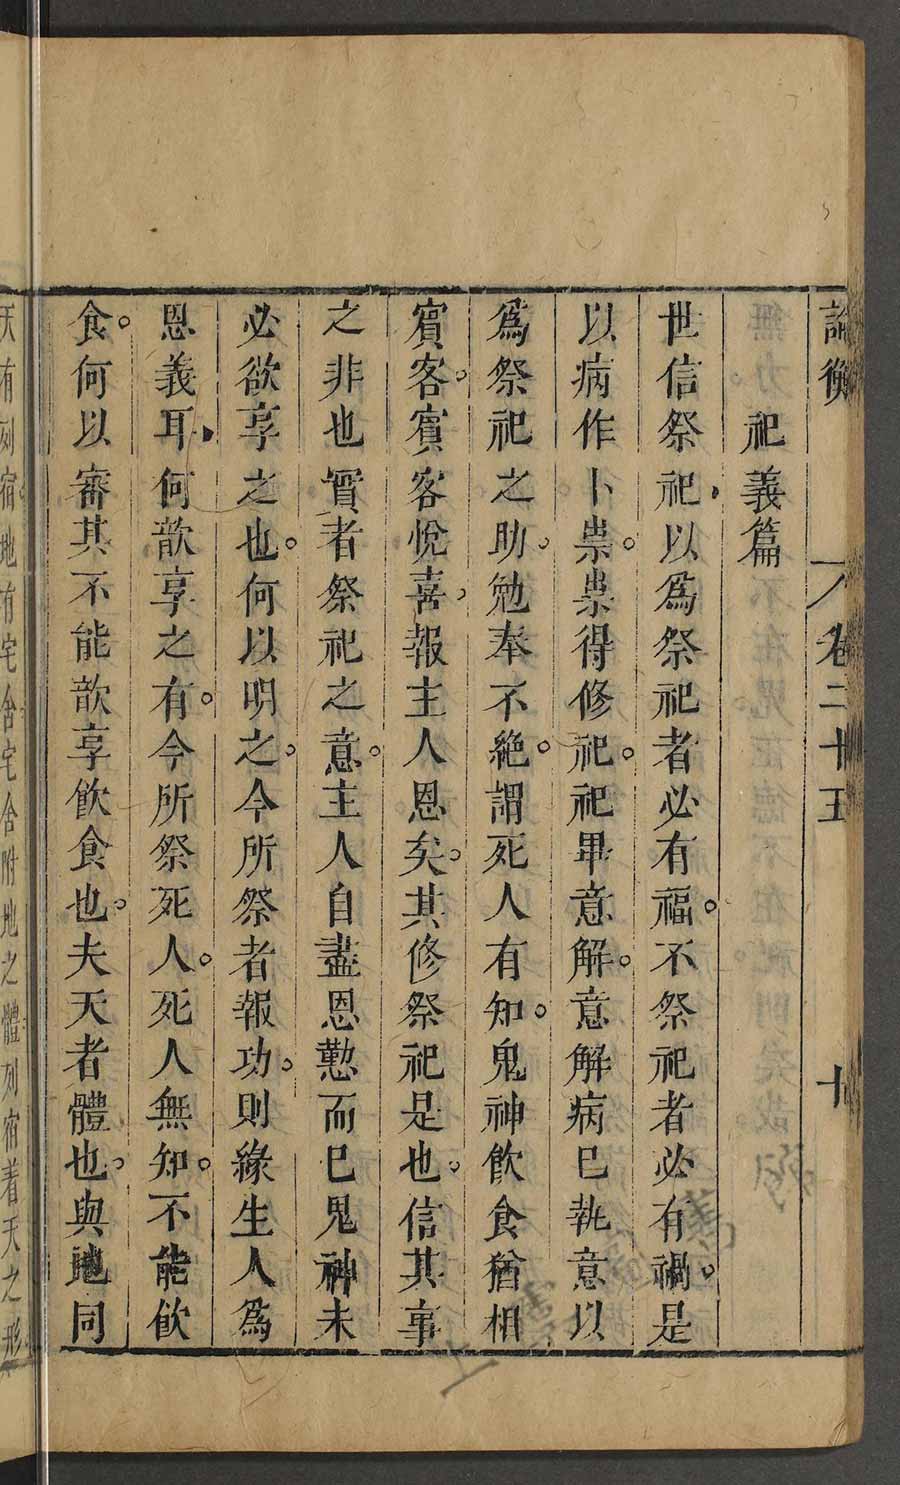 論衡 卷二十五 十
祀義篇
世信祭祀以爲祭祀者必有福。不祭祀者必有禍。是
以病作卜祟。祟得修祀。祀畢意解。意解病已執意以
爲祭祀之助。勉奉不絶。謂死人有知。鬼神飲食猶相
賓客。賓客悅喜。報主人恩矣。其修祭祀是也。信其事
之非也實者祭祀之意。主人自盡恩懃而已鬼神未
必欲享之也。何以明之。今所祭者報功。則緣生人爲
恩義耳何歆享之有。今所祭死人。死人無知。不能飲
食。何以審其不能歆享飲食也。夫天者體也。與地同
天有列宿地有宅舍宅舍附地之體列宿着天之形